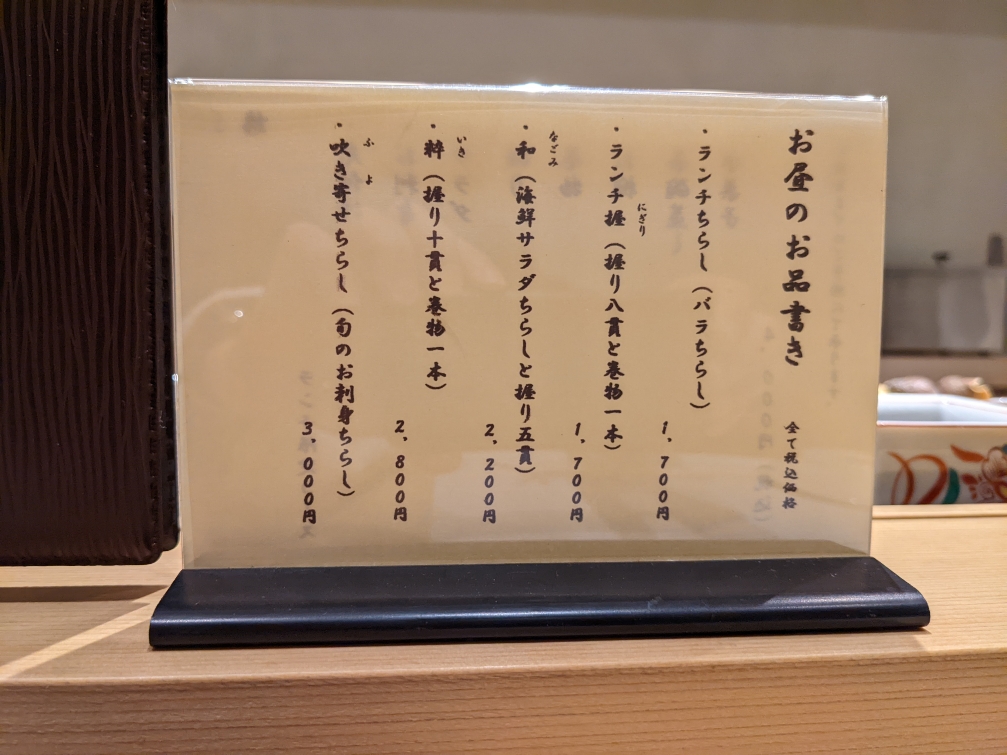 お昼のお品書き
全て税込価格
・ランチちらし（バラちらし）
1,700円
・ランチ握（握り八貫と巻物一本）
にぎり
1,700円
・和（海鮮サラダちらしと握り五貫）
なごみ
2,200円
・粋（握り十貫と巻物一本）
いき
2,800円
・吹き寄せちらし（旬のお刺身ちらし）
ふ よ
3,000円